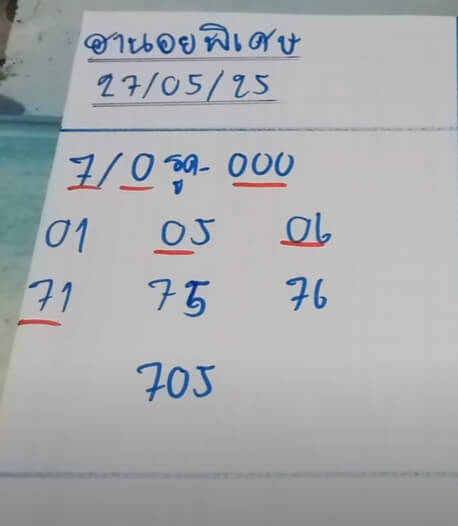 ฮานอยพิเศษ
27/05/25
7/0 รูด- 000
01 05 06
71 75 76
705